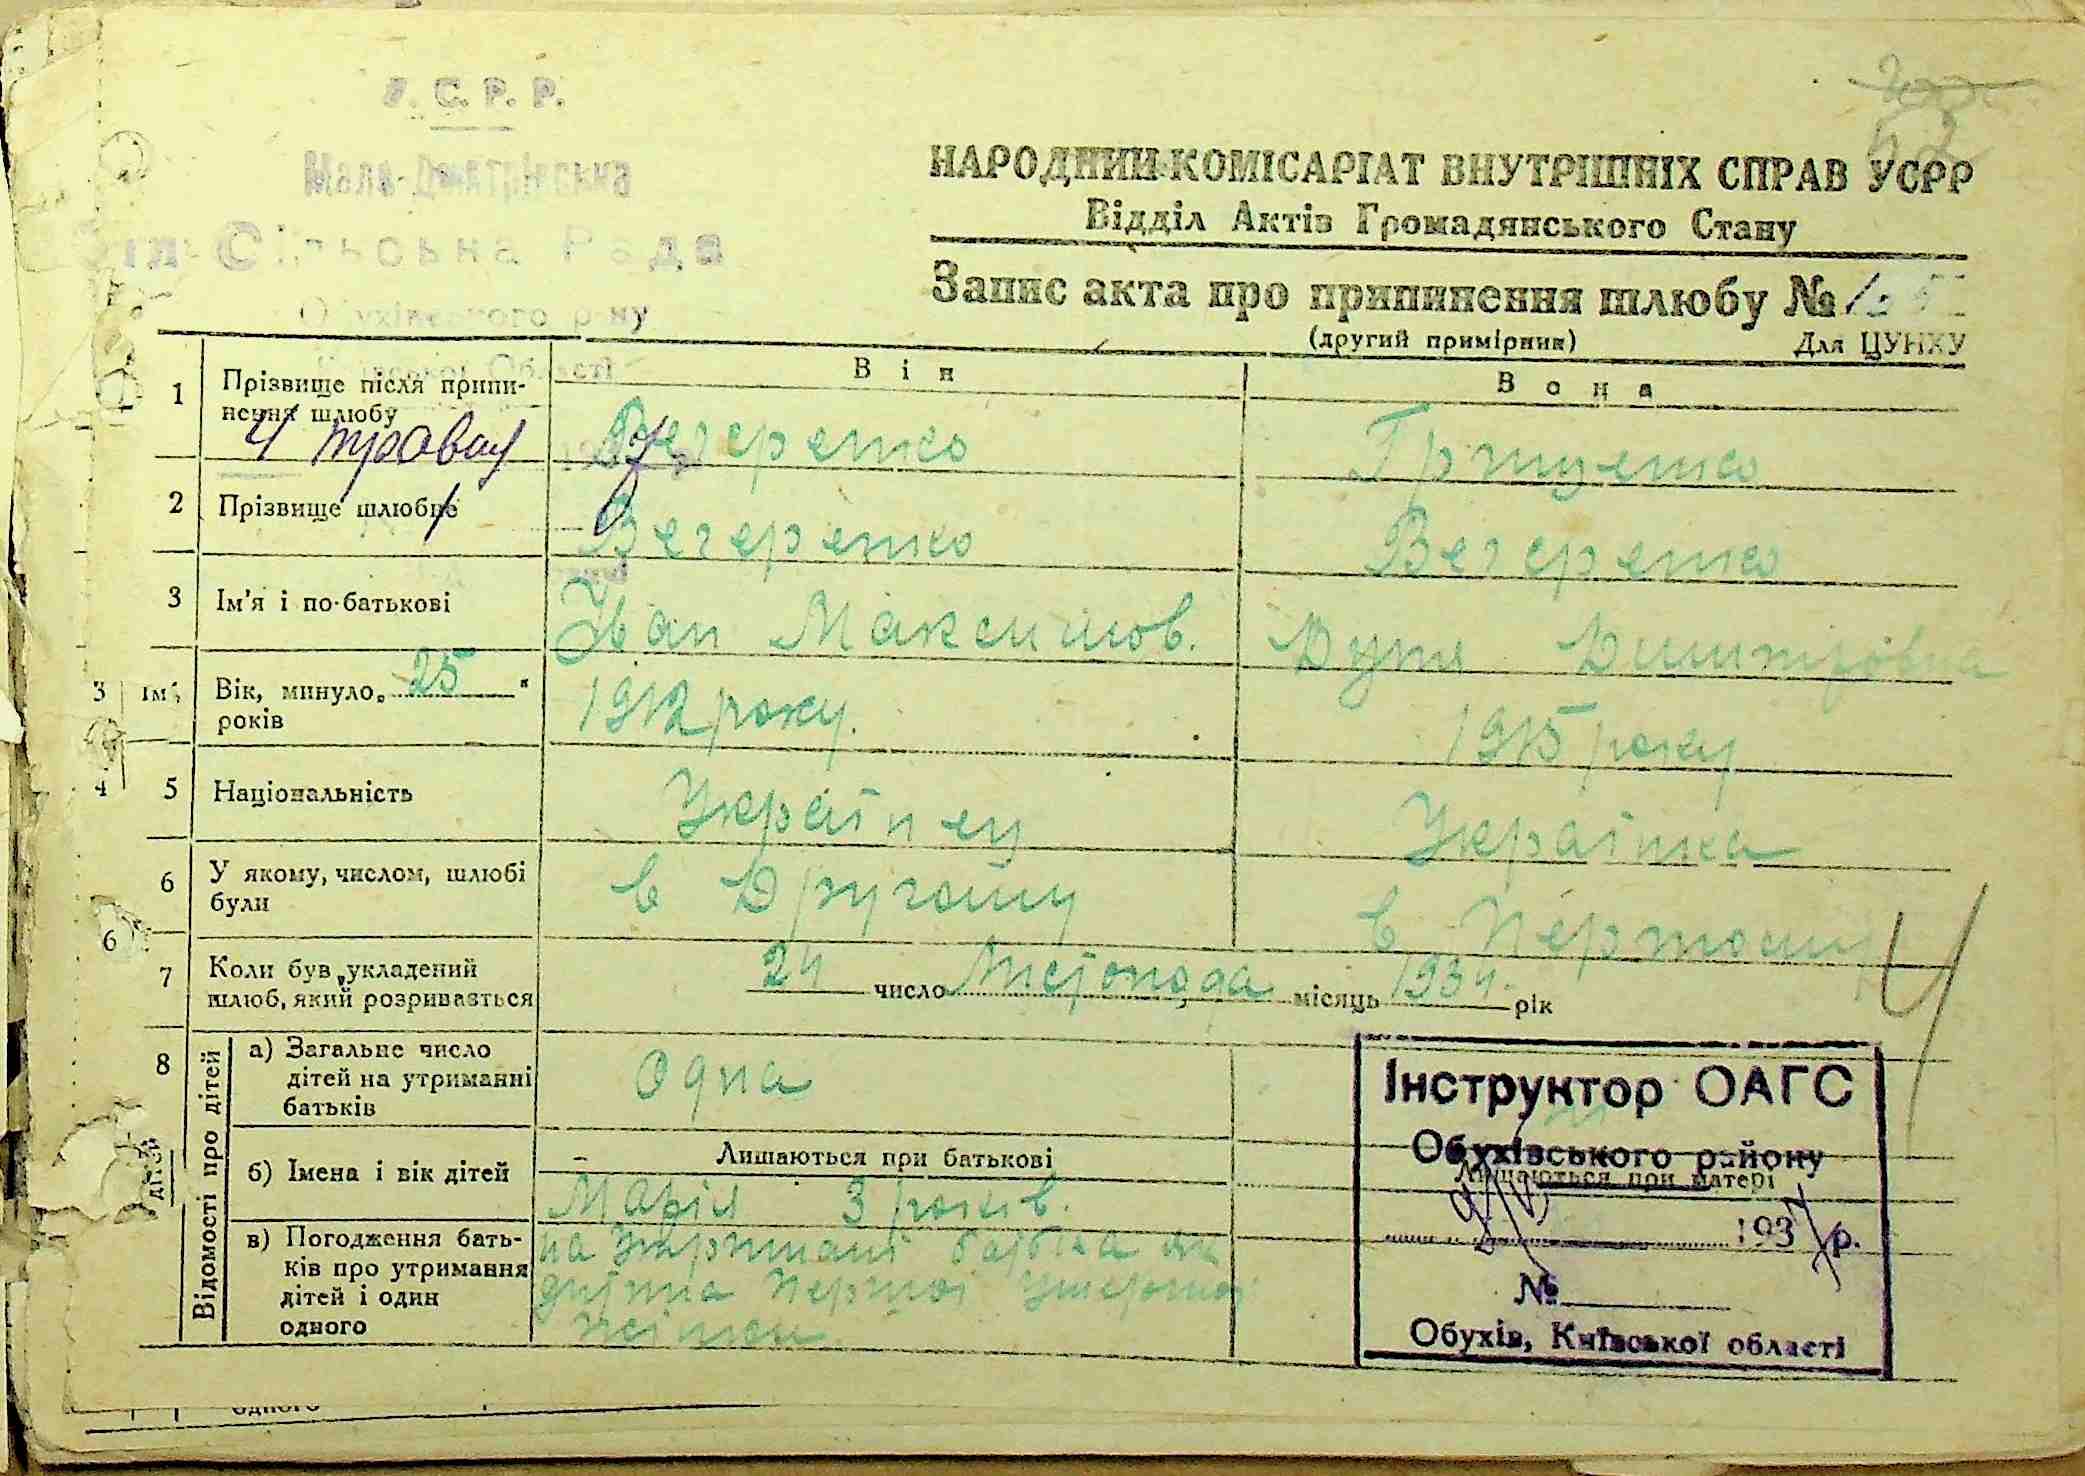 У. С. Р. Р.
Мало-Дмитрівська
Сільська Рада
Обухівського р-ну
Київської Області
4 травня 1937 р
52
НАРОДНИЙ КОМІСАРІАТ ВНУТРІШНІХ СПРАВ УСРР
Відділ Актів Громадянського Стану
Запис акта про припинення шлюбу №
(другий примірник) Для ЦУНХУ
Він Вона
1 Прізвище після припи-
нення шлюбу Вечеренко Грищенко
2 Прізвище шлюбне Вечеренко Вечеренко
3 Ім'я і по-батькові Іван Максимов. Дмитрівна
3 Ім'
Вік, минуло „25" 1912 року. 1915 року
років
4
5 Національність Українец Українка
6 У якому, числом, шлюбі
були в Другому в Першому
6
7 Коли був укладений
шлюб, який розривається 24 число Листопада місяць 1934. рік
8 Відомості про дітей
а) Загальне число
дітей на утриманні
батьків Одна
б) Імена і вік дітей Лишаються при батькові Лишаються при матері
Марія 3 років.
в) Погодження бать-
ків про утримання
дітей і один
одного
на Утриманні батька як
дитина Першої умершої
жінки.
Інструктор ОАГС
Обухівського району
1937 р.
№
Обухів, Київської області
4
дітей
одного